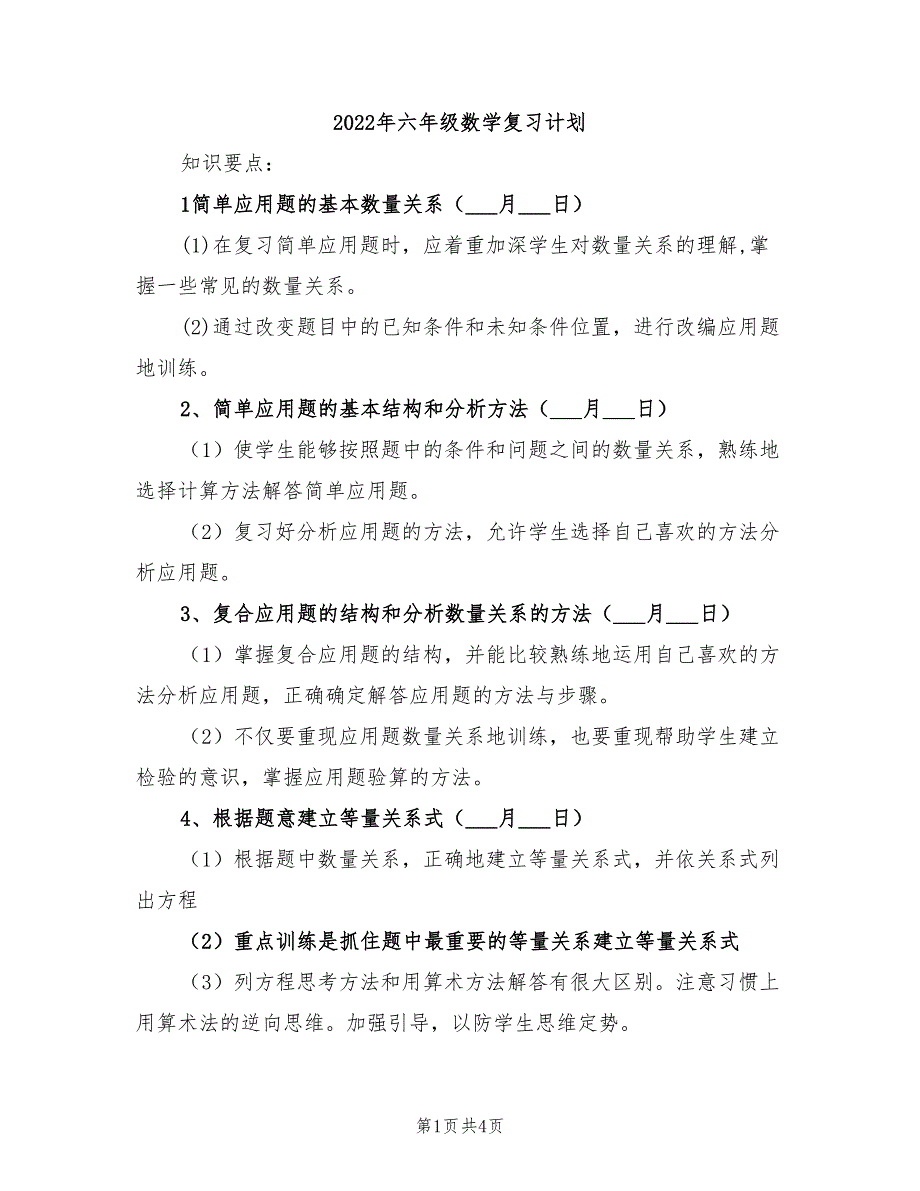 2022年六年级数学复习计划
知识要点：
1简单应用题的基本数量关系（___月___日）
(1)在复习简单应用题时，应着重加深学生对数量关系的理解,掌
握一些常见的数量关系。
(2)通过改变题目中的已知条件和未知条件位置，进行改编应用题
地训练。
2、简单应用题的基本结构和分析方法（___月___日）
（1）使学生能够按照题中的条件和问题之间的数量关系，熟练地
选择计算方法解答简单应用题。
（2）复习好分析应用题的方法，允许学生选择自己喜欢的方法分
析应用题。
3、复合应用题的结构和分析数量关系的方法（___月___日）
（1）掌握复合应用题的结构，并能比较熟练地运用自己喜欢的方
法分析应用题，正确确定解答应用题的方法与步骤。
（2）不仅要重现应用题数量关系地训练，也要重现帮助学生建立
检验的意识，掌握应用题验算的方法。
4、根据题意建立等量关系式（___月___日）
（1）根据题中数量关系，正确地建立等量关系式，并依关系式列
出方程
（2）重点训练是抓住题中最重要的等量关系建立等量关系式
（3）列方程思考方法和用算术方法解答有很大区别。注意习惯上
用算术法的逆向思维。加强引导，以防学生思维定势。
第1页共4页